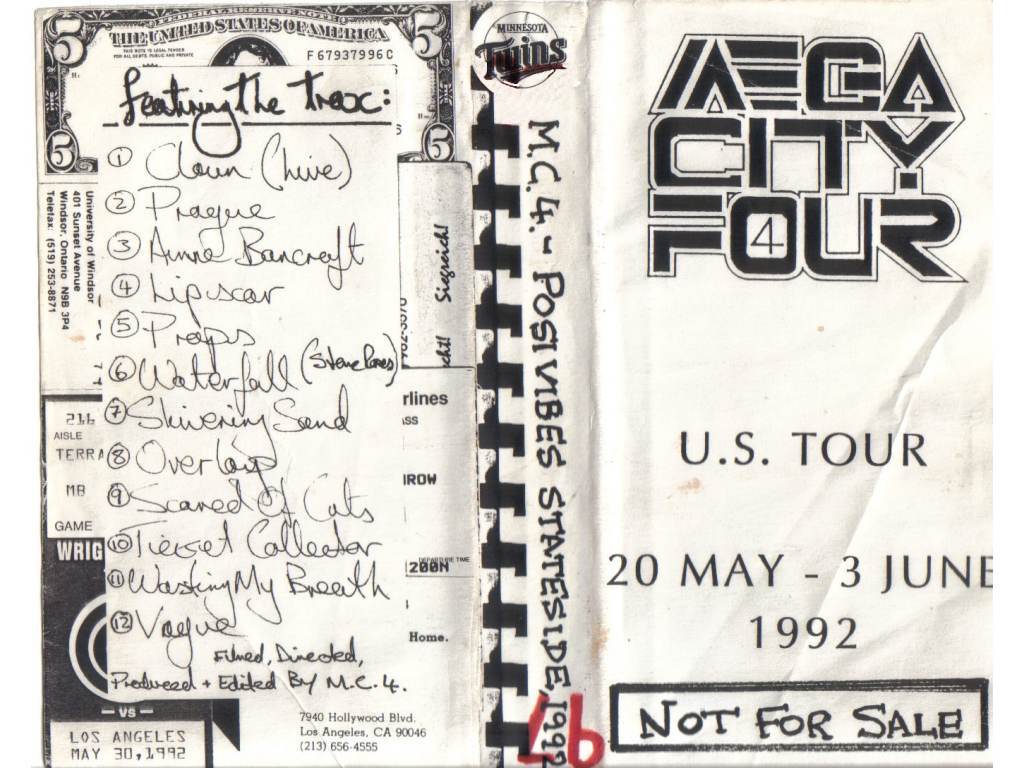 FEDERAL RESERVE NOTE
THE UNITED STATES OF AMERICA
THIS NOTE IS LEGAL TENDER
FOR ALL DEBTS, PUBLIC AND PRIVATE
F67937996C
5
5
5
5
Featuring The Trax:
① Clown (Live)
② Prague
③ Anne Bancroft
④ Lipscar
⑤ Props
⑥ Waterfall
⑦ Shivering Sand
⑧ Overlap
⑨ Scared Of Cats
⑩ Ticket Collector
⑪ Wasting My Breath
⑫ Vague
Filmed, Directed,
Produced + Edited By M.C.4.
University of Windsor
401 Sunset Avenue
Windsor, Ontario N9B 3P4
Telefax: (519) 253-8871
Siegreich!
cht!
rlines
SS
ROW
DEPARTURE TIME
1200N
Home.
216
AISLE
TERRA
MB
GAME
WRIG
VS
LOS ANGELES
MAY 30,1992
7940 Hollywood Blvd.
Los Angeles, CA 90046
(213) 656-4555
MINNESOTA
Twins
M.C.4. - POSIVIBES STATESIDE, 1992
MEGA
CITY
FOUR
4
U.S. TOUR
20 MAY - 3 JUNE
1992
NOT FOR SALE